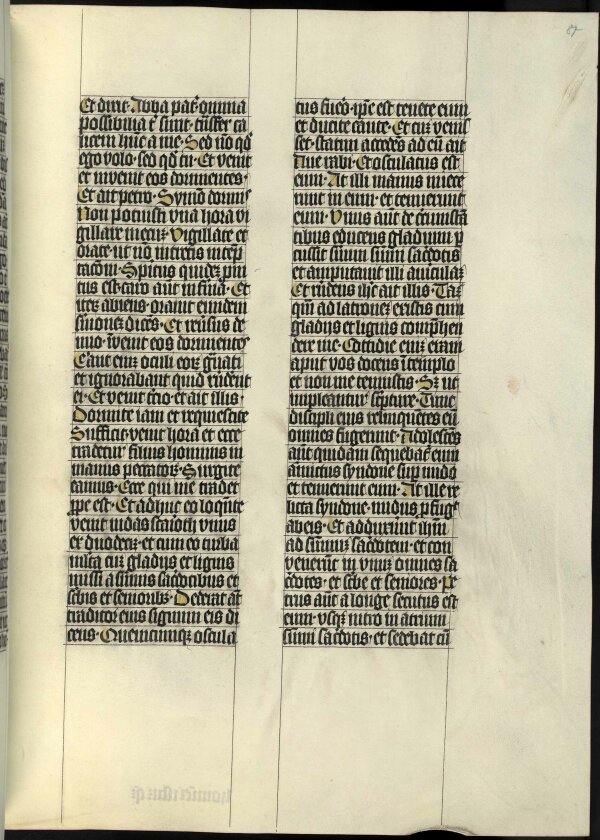 Et dixit· Abba pat͛· omnia
possibilia t̄ sunt· trāsfer ca
licem hūc a me· Sed nō qd̄
ego volo· sed qd̄ tu· Et venit
et invenit eos dormientes·
Et ait petro· Symō dormis
Non potuisti vna hora vi
gillare mecū· vigillate et
orate ut nō intretis in tēp
tacōm· Spiritus quidez pm̄
tus est· caro aūt infirma· Et
iterz abiens· oravit eundem
smonez dicēs· Et reūsus de
nuo· īvenit eos dormientes
Erāt enīz oculi eorz gūati
et ignorabant quid rn̄dent
ei· Et venit tcio· et ait illis·
Dormite iam et requiescite
Sufficit· venit hora· et ecce
tradetur filius hominis in
manus peccatorz· Surgite
eamus· Ecce qui me tradet
ꝓpe est· Et adhuc eo loquēte
venit iudas scarioth vnus
ex duodecīz· et cum eo turba
multa cuz gladijs et lignis
missi a sūmis sacerdotibus et
scbis et senioribz· Dederat aūt
traditor eius signum eis di
cens· Quemcumqz oscula
tus fuero· ipē est tenete eum
et ducite caute· Et cuz venis
set· statim accedēs ad eū ait
Aue rabi· Et osculatus est
eum· At illi manus iniece
runt in eum· et tenuerunt
eum· Vnus aūt de circūstā
tibus educens gladium p
cussit suum sūmi sacerdotis
et amputauit illi auriculaz
Et rn̄dens ihc̄ ait illis· Taz
qm̄ ad latronez existis cum
gladijs et lignis comphen
dere me· Cottidie enīz eram
aput vos docens ī templo
et non me tenuistis· Sz ut
impleantur scpture· Tunc
discipli eius relinquētes eū
omnes fugerunt· Adolescēs
aūt quidam sequebat̄ eum
amictus syndone sup nudo
et tenuerunt eum· At ille re
licta syndone· nudus pfugit
ab eis· Et adduxunt ihm̄
ad sūmuz sacerdotem· et con
venerunt in vnuz omnes sa
cerdotes· et scbe et seniores· Pe
trus aūt a longe secutus est
eum· vsqz intro in atrium
sūmi sacerdotis· et sedebat cū